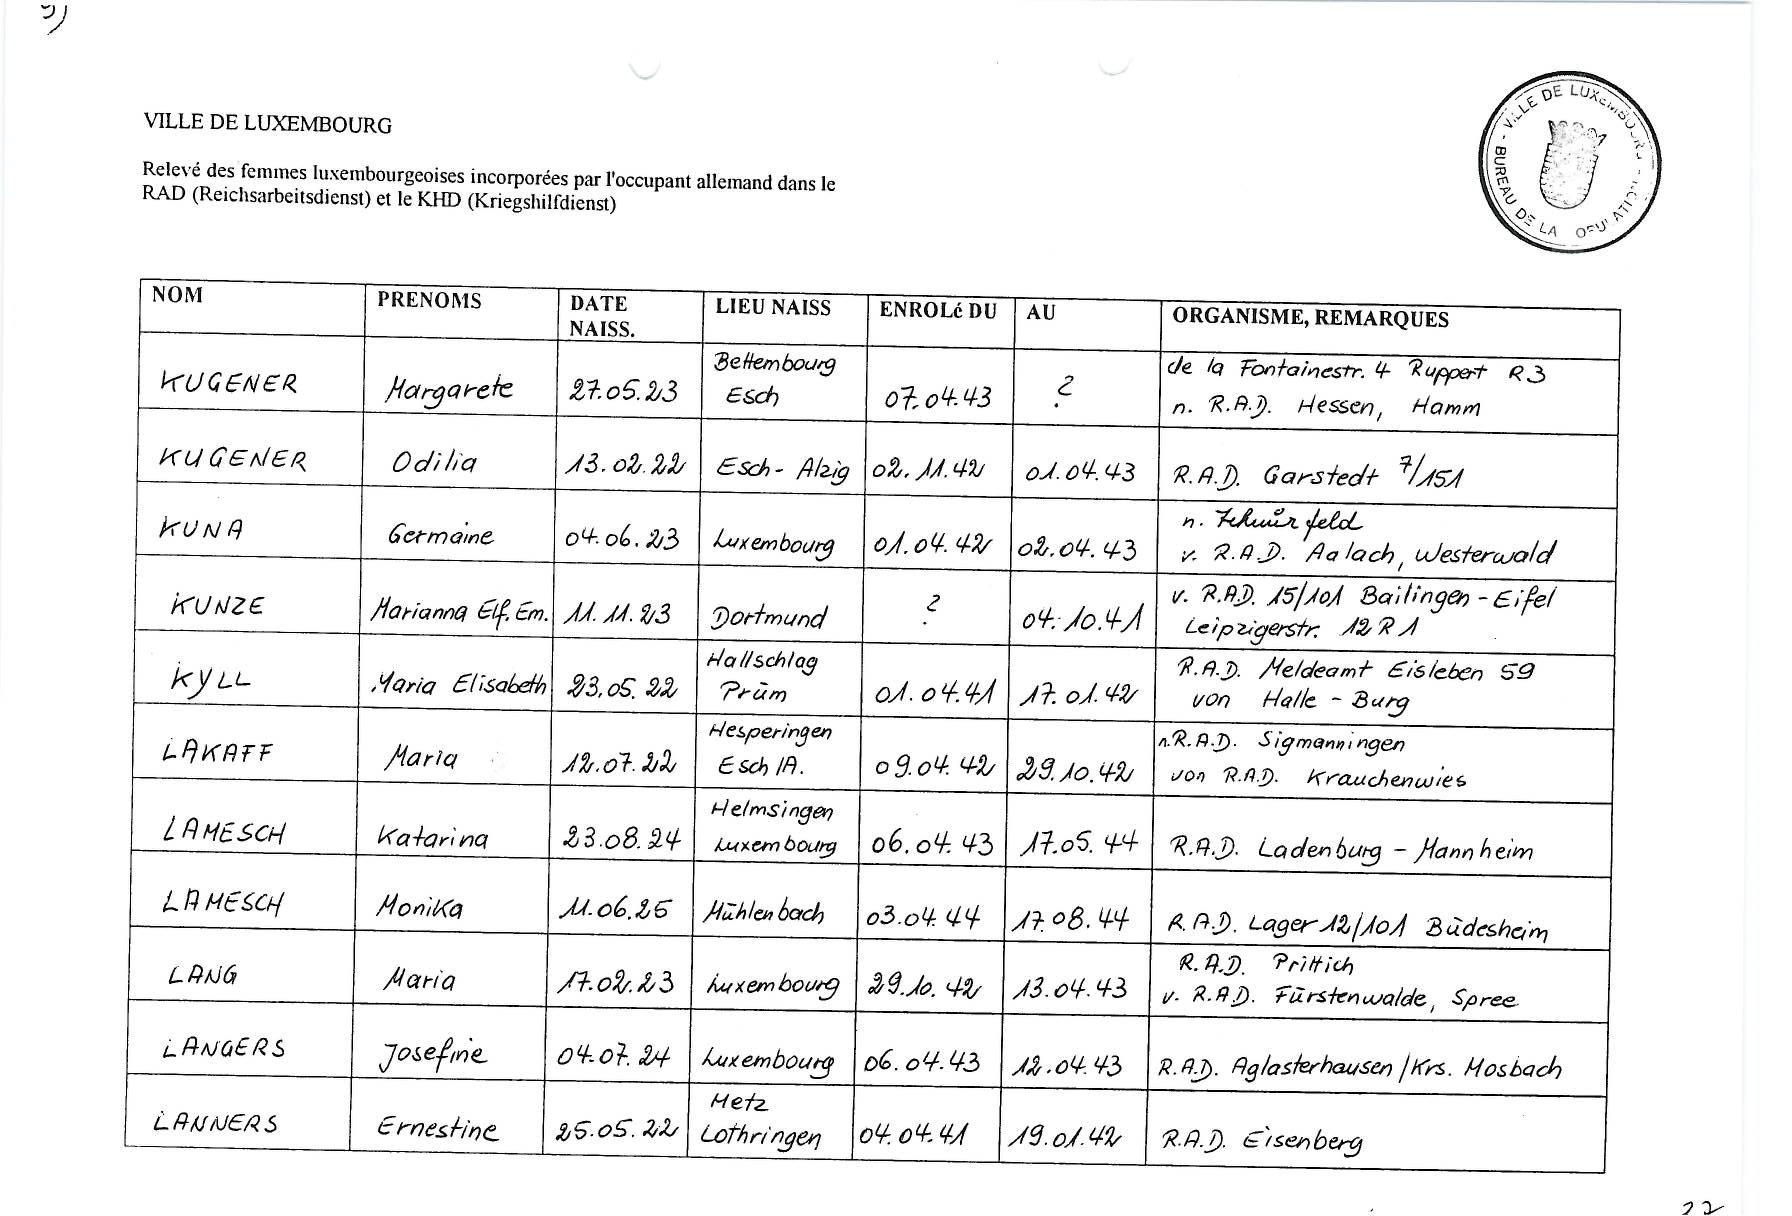 VILLE DE LUXEMBOURG
Relevé des femmes luxembourgeoises incorporées par l'occupant allemand dans le
RAD (Reichsarbeitsdienst) et le KHD (Kriegshilfdienst)
VILLE DE LUXEMBOURG
BUREAU DE LA
NOM PRENOMS DATE NAISS. LIEU NAISS ENROLé DU AU ORGANISME, REMARQUES
KUGENER Margarete 27.05.23 Bettembourg Esch 07.04.43 ? de la Fontainestr. 4 Ruppert R3
n. R.A.D. Hessen, Hamm
KUGENER Odilia 13.02.22 Esch-Alzig 02.11.42 01.04.43 R.A.D. Garstedt 7/151
KUNA Germaine 04.06.23 Luxembourg 01.04.42 02.04.43 n.
v. R.A.D. Aalach, Westerwald
KUNZE Marianna Elf. Em. 11.11.23 Dortmund ? 04.10.41 v. R.A.D. 15/101 Bailingen-Eifel
Leipzigerstr. 12 R1
KYLL Maria Elisabeth 23.05.22 Hallschlag Prüm 01.04.41 17.01.42 R.A.D. Meldeamt Eisleben 59
von Halle - Burg
LAKAFF Maria 12.07.22 Hesperingen Esch/A. 09.04.42 29.10.42 n.R.A.D. Sigmanningen
von R.A.D. Krauchenwies
LAMESCH Katarina 23.08.24 Helmsingen Luxembourg 06.04.43 17.05.44 R.A.D. Ladenburg - Mannheim
LAMESCH Monika 11.06.25 Mühlenbach 03.04.44 17.08.44 R.A.D. Lager 12/101 Büdesheim
LANG Maria 17.02.23 Luxembourg 29.10.42 13.04.43 R.A.D. Prittich
v. R.A.D. Fürstenwalde, Spree
LANGERS Josefine 04.07.24 Luxembourg 06.04.43 12.04.43 R.A.D. Aglasterhausen/Krs. Mosbach
LANNERS Ernestine 25.05.22 Metz Lothringen 04.04.41 19.01.42 R.A.D. Eisenberg